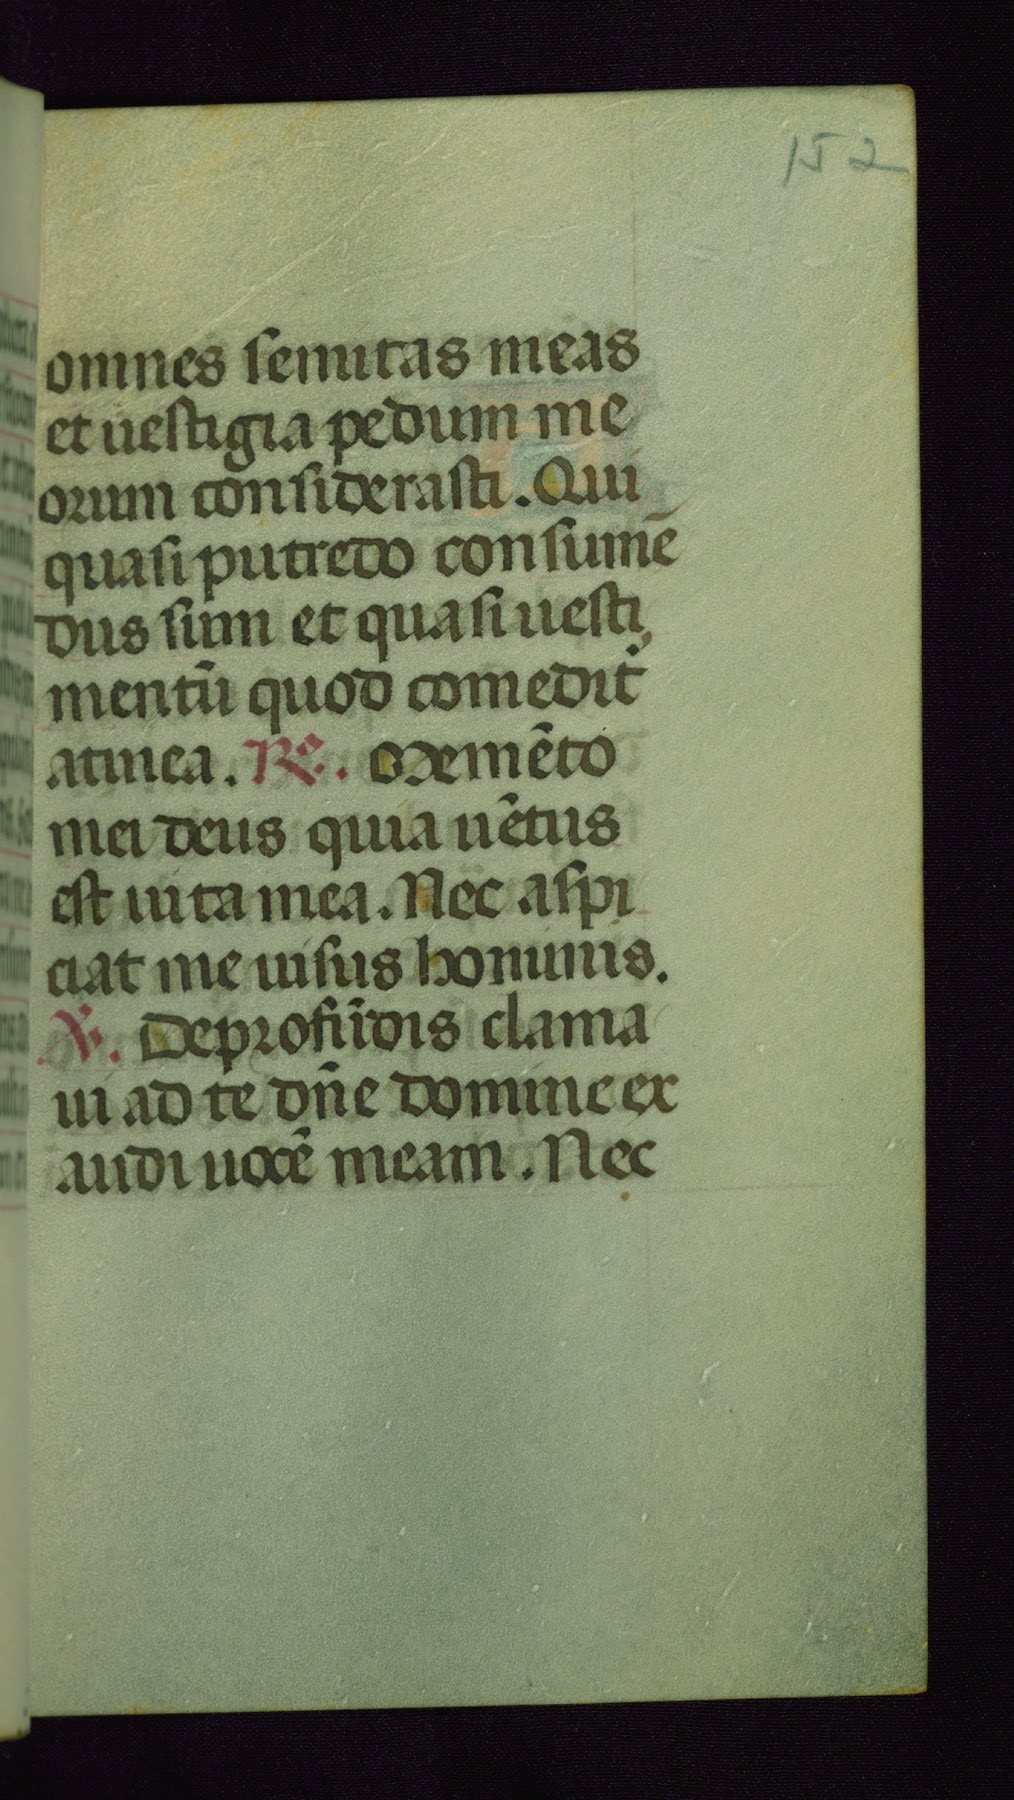 152
omnes semitas meas
et uestigia pedum me
orum considerasti. Qui
quasi putredo consumē
dus sum et quasi uesti,
mentū quod comedit
atinea. R̃e. Memēto
mei deus quia uētus
est uita mea. Nec aspi
ciat me uisus hominis.
V̓. De profūdis clama
ui ad te dn̄e domine ex
audi uocē meam. Nec